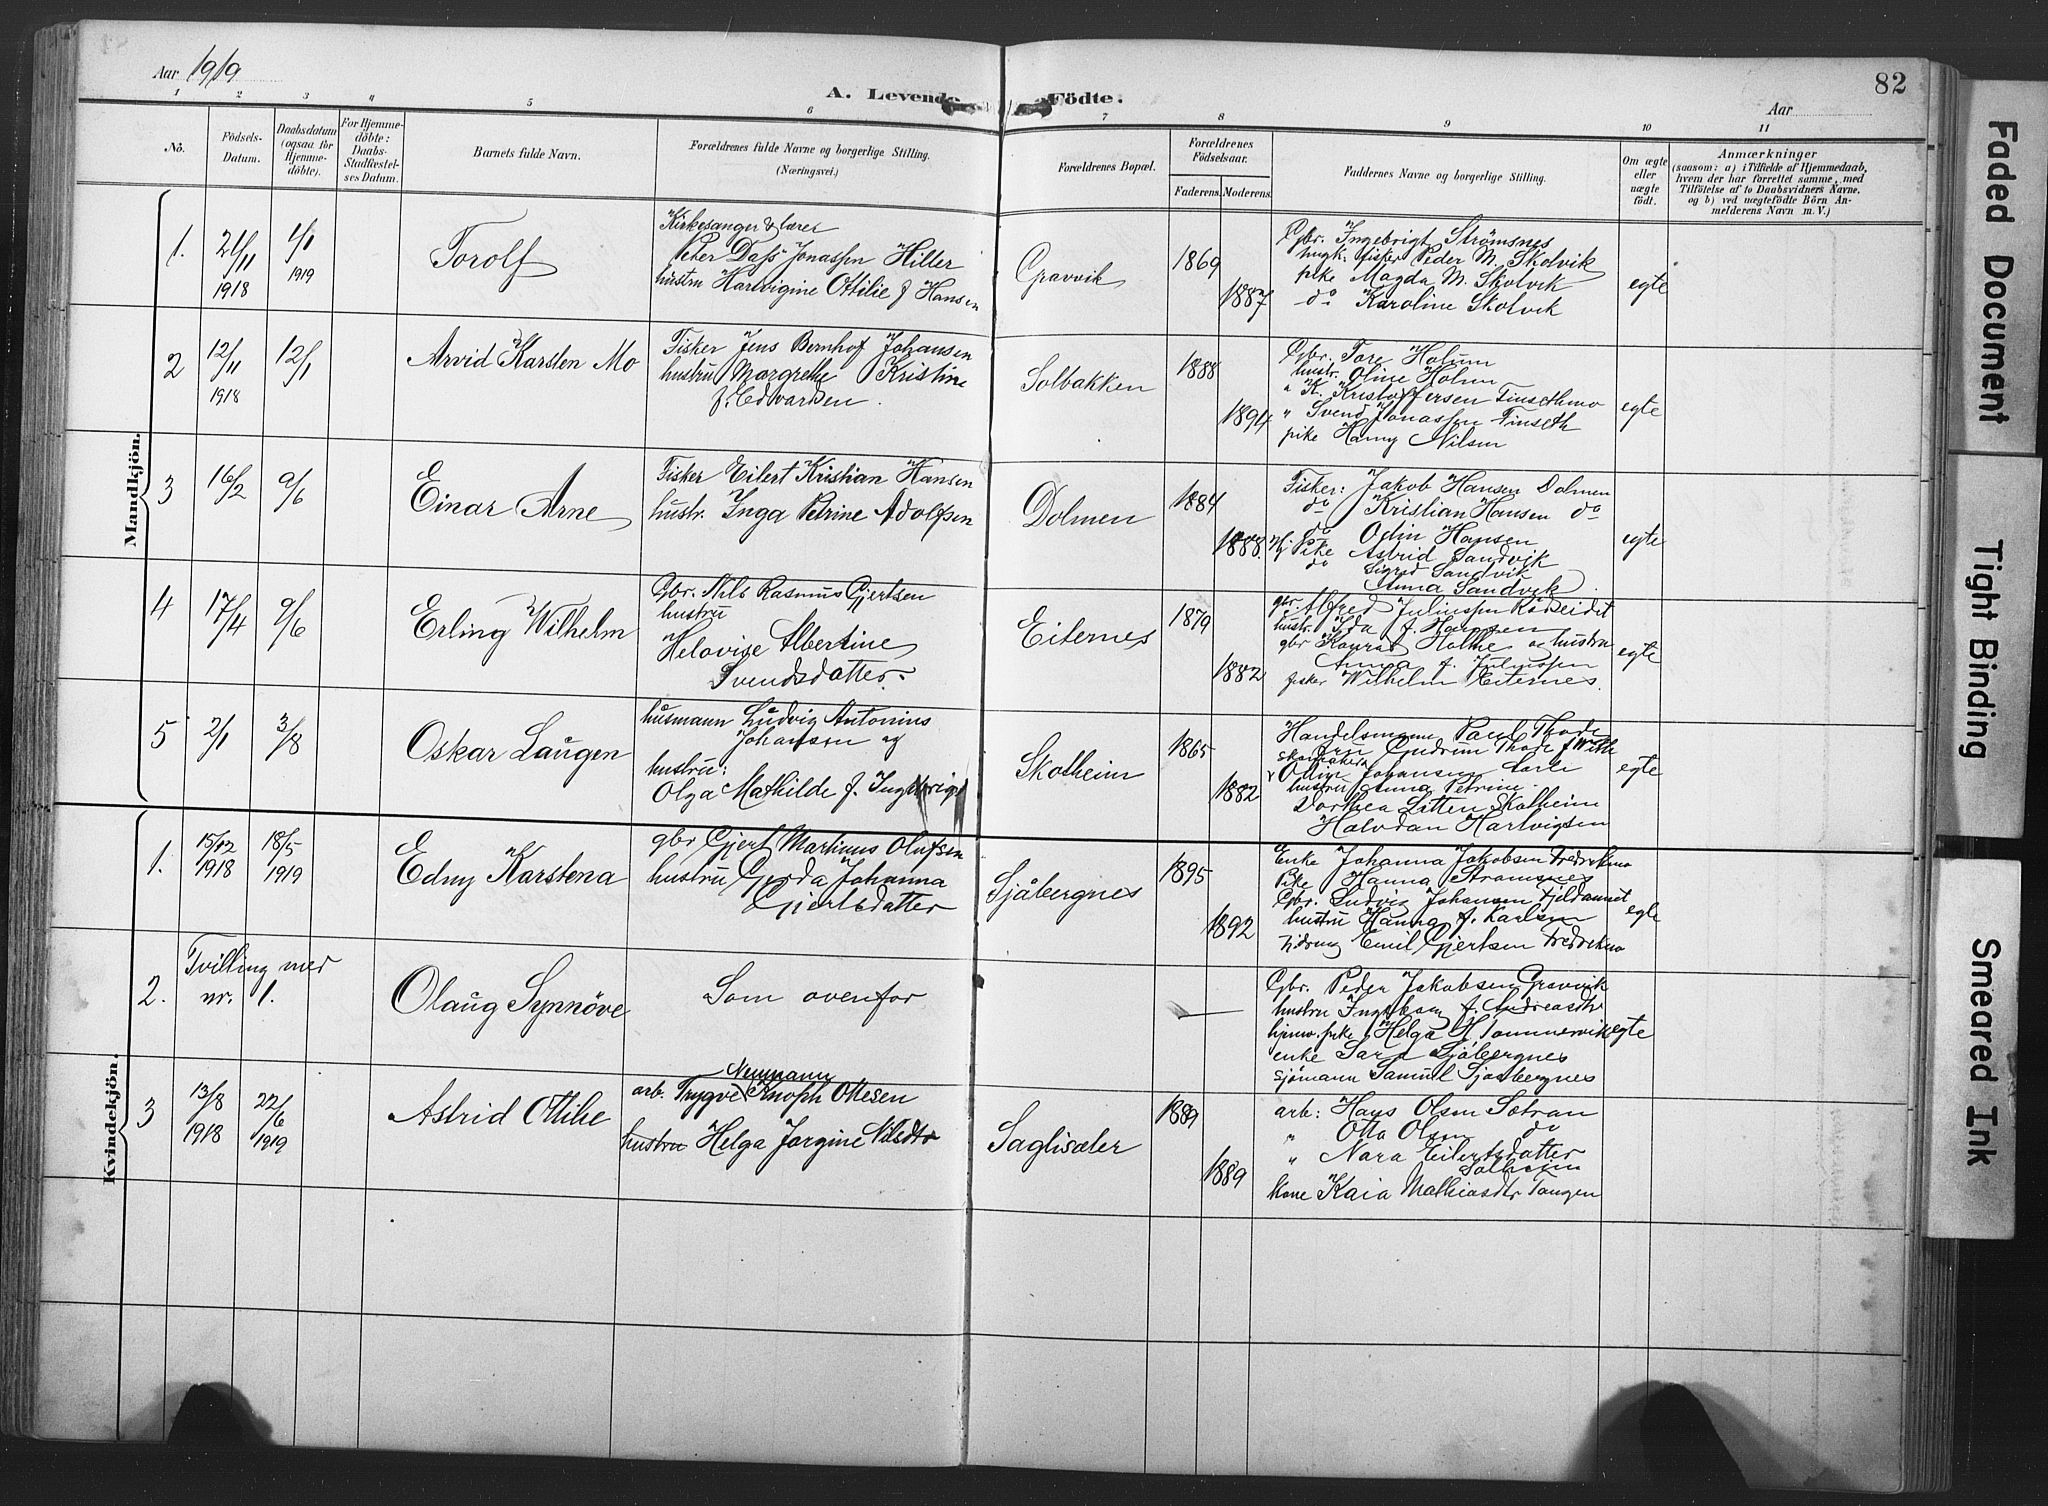 Aar 1919
A. Levende Födte.
82
Aar
1 2 3 4 5 6 7 8 9 10 11
Nô.
Födsels-Datum.
Daabsdatum (ogsaa for Hjemmedöbte).
For Hjemmedöbte: Daabs-Stadfæstelses Datum.
Barnets fulde Navn.
Forældrenes fulde Navne og borgerlige Stilling. (Næringsvei.)
Forældrenes Bopæl.
Forældrenes Födselsaar.
Faderens. Moderens.
Faddernes Navne og borgerlige Stilling.
Om ægte eller uægte födt.
Anmærkninger
(saasom: a) i Tilfælde af Hjemmedaab, hvem der har forrettet samme, med Tilföielse af to Daabsvidners Navne, og b) ved uægtefödte Börn Anmelderens Navn m. V.)
Mandkjön.
1. 21/11 1918 1/1 1919
Torolf
Kirkesanger & lærer
Peter Dass Jonassen Hiller
hustru Hartvigine Ottilie f Hansen
Gravvik
1869
1887
Gbr. Ingebrigt Strömsnes
ungk. fisker Peder M. Skotvik
pike Magda M. Skotvik
do Karoline Skotvik
egte
2 12/11 1918 12/1
Arvid Karsten Mo
Fisker Jens Bernhof Johansen
hustru Margrethe Kristine
f. Edvardsen.
Solbakken
1888
1894
Gbr. Tore Holum
hustr. Oline Holum
" K. Kristoffersen Finsethmo
" Svend Jonassen Finseth
pike Hanny Nilsen
egte
3 16/2 9/6
Einar Arne
Fisker Eilert Kristian Hansen
hustr. Inga Petrine Adolfsen
Dolmen
1884
1888
Fisker: Jakob Hansen Dolmen
do Kristian Hansen do
do Odin Hansen
Pike Astrid Sandvik
do Sigrid Sandvik
Anna Sandvik
egte
4 17/4 9/6
Erling Wilhelm
Gbr. Nils Rasmus Gjertsen
hustru
Helovise Albertine
Svendsdatter.
Eiternes
1879
1882
gbr. Alfred Juliussen Röseidet
hustr. Ida f. Hanssen
gbr Konrad Holthe og hustru
Anna f. Juliussen
fisker Wilhelm Eiternes.
egte
5 2/1 3/8
Oskar Laugen
husmann Ludvig Antonius
Johansen og
hustru:
Olga Mathilde f. Ingebrigts
Skotheim
1865
1882
Handelsmann Paul Thode
fru Gudrun Thode f With
skomaker
Odin Johansen Sarli
hustru Anna Petrine
Dorthea Litten Skotheim
Halvdan Hartvigsen
egte
Kvindekjön.
1. 15/12 1918 18/5 1919
Edny Karstena
gbr Gjert Martinus Olufsen
hustru Gerda Johanna
Gjertsdatter
Sjåbergnes
1895
1892
Enke Johanna Jakobsen Fredrikmo
Pike Hanna Strömsnes
Gbr. Ludvig Johansen Fjeldamset
hustru Hanna f. Karlsen
Emil Gjertsen Fredrikmo
egte
2. Tvilling med
nr. 1.
Olaug Synnöve
Som ovenfor
Gbr. Peder Jakobsen Gravvik
hustru Ingeborg f. Andreasdtr
hjemv. pike Helga H. Tommervik
enke Sara Sjåbergnes
sjömann Samuel Sjåbergnes
egte
3 13/8 1918 22/6 1919
Astrid Ottilie
Neumann
arb. Trygve Knoph Ottesen
hustru Helga Jörgine Nilsdtr
Saglisæter
1889
1889
arb: Hans Olsen Sötran
" Otto Olsen do
" Nora Eilertsdatter
Solheim
kone Kaia Mathiasdtr Tangen
Faded Document
Tight Binding
Smeared Ink